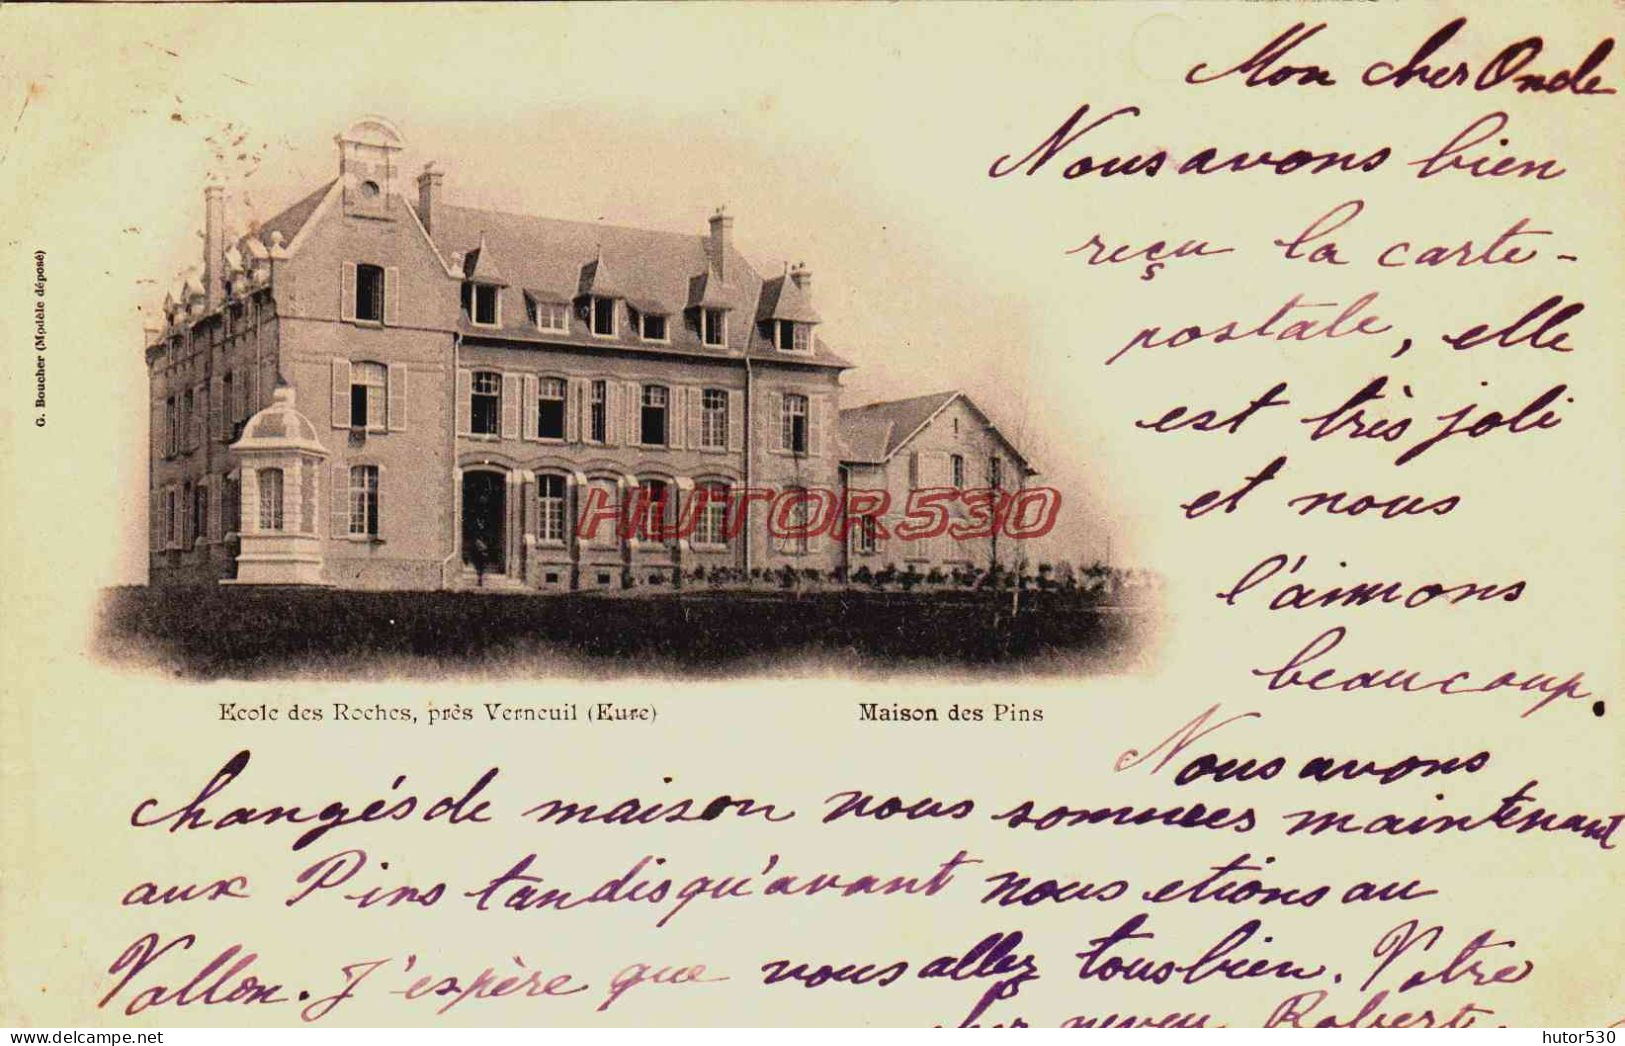 Mon cher Oncle
Nous avons bien
reçu la carte-
postale, elle
est très joli
et nous
l'aimons
beaucoup.
G. Boucher (Modèle déposé)
HUTOR530
Ecole des Roches, près Verneuil (Eure)
Maison des Pins
Nous avons
changés de maison nous sommes maintenant
aux Pins tandis qu'avant nous etions au
Vallon. J'espère que vous allez tous bien. Votre
cher neveu Robert.
delcampe.net
hutor530